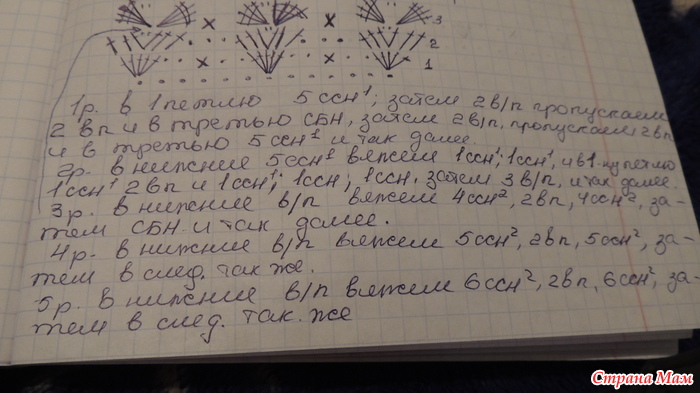 3
2
1
1р. в 1 петлю 5ссн¹; затем 2 в/п пропускаем
2 вп и в третью СБН, затем 2 в/п, пропускаем 2вп
и в третью 5ссн¹ и так далее.
2р. в нижние 5ссн¹ вяжем 1ссн¹; 1ссн¹, и в 1-ну петлю
1ссн¹ 2вп и 1ссн¹; 1ссн; 1ссн. затем 3 в/п, и так далее.
3р. в нижние в/п вяжем 4ссн², 2вп, 4ссн², за-
тем СБН. и так далее.
4р. в нижние в/п вяжем 5ссн², 2вп, 5ссн², за-
тем в след. так же.
5р. в нижние в/п вяжем 6ссн², 2вп, 6ссн², за-
тем в след. так же
Страна Мам